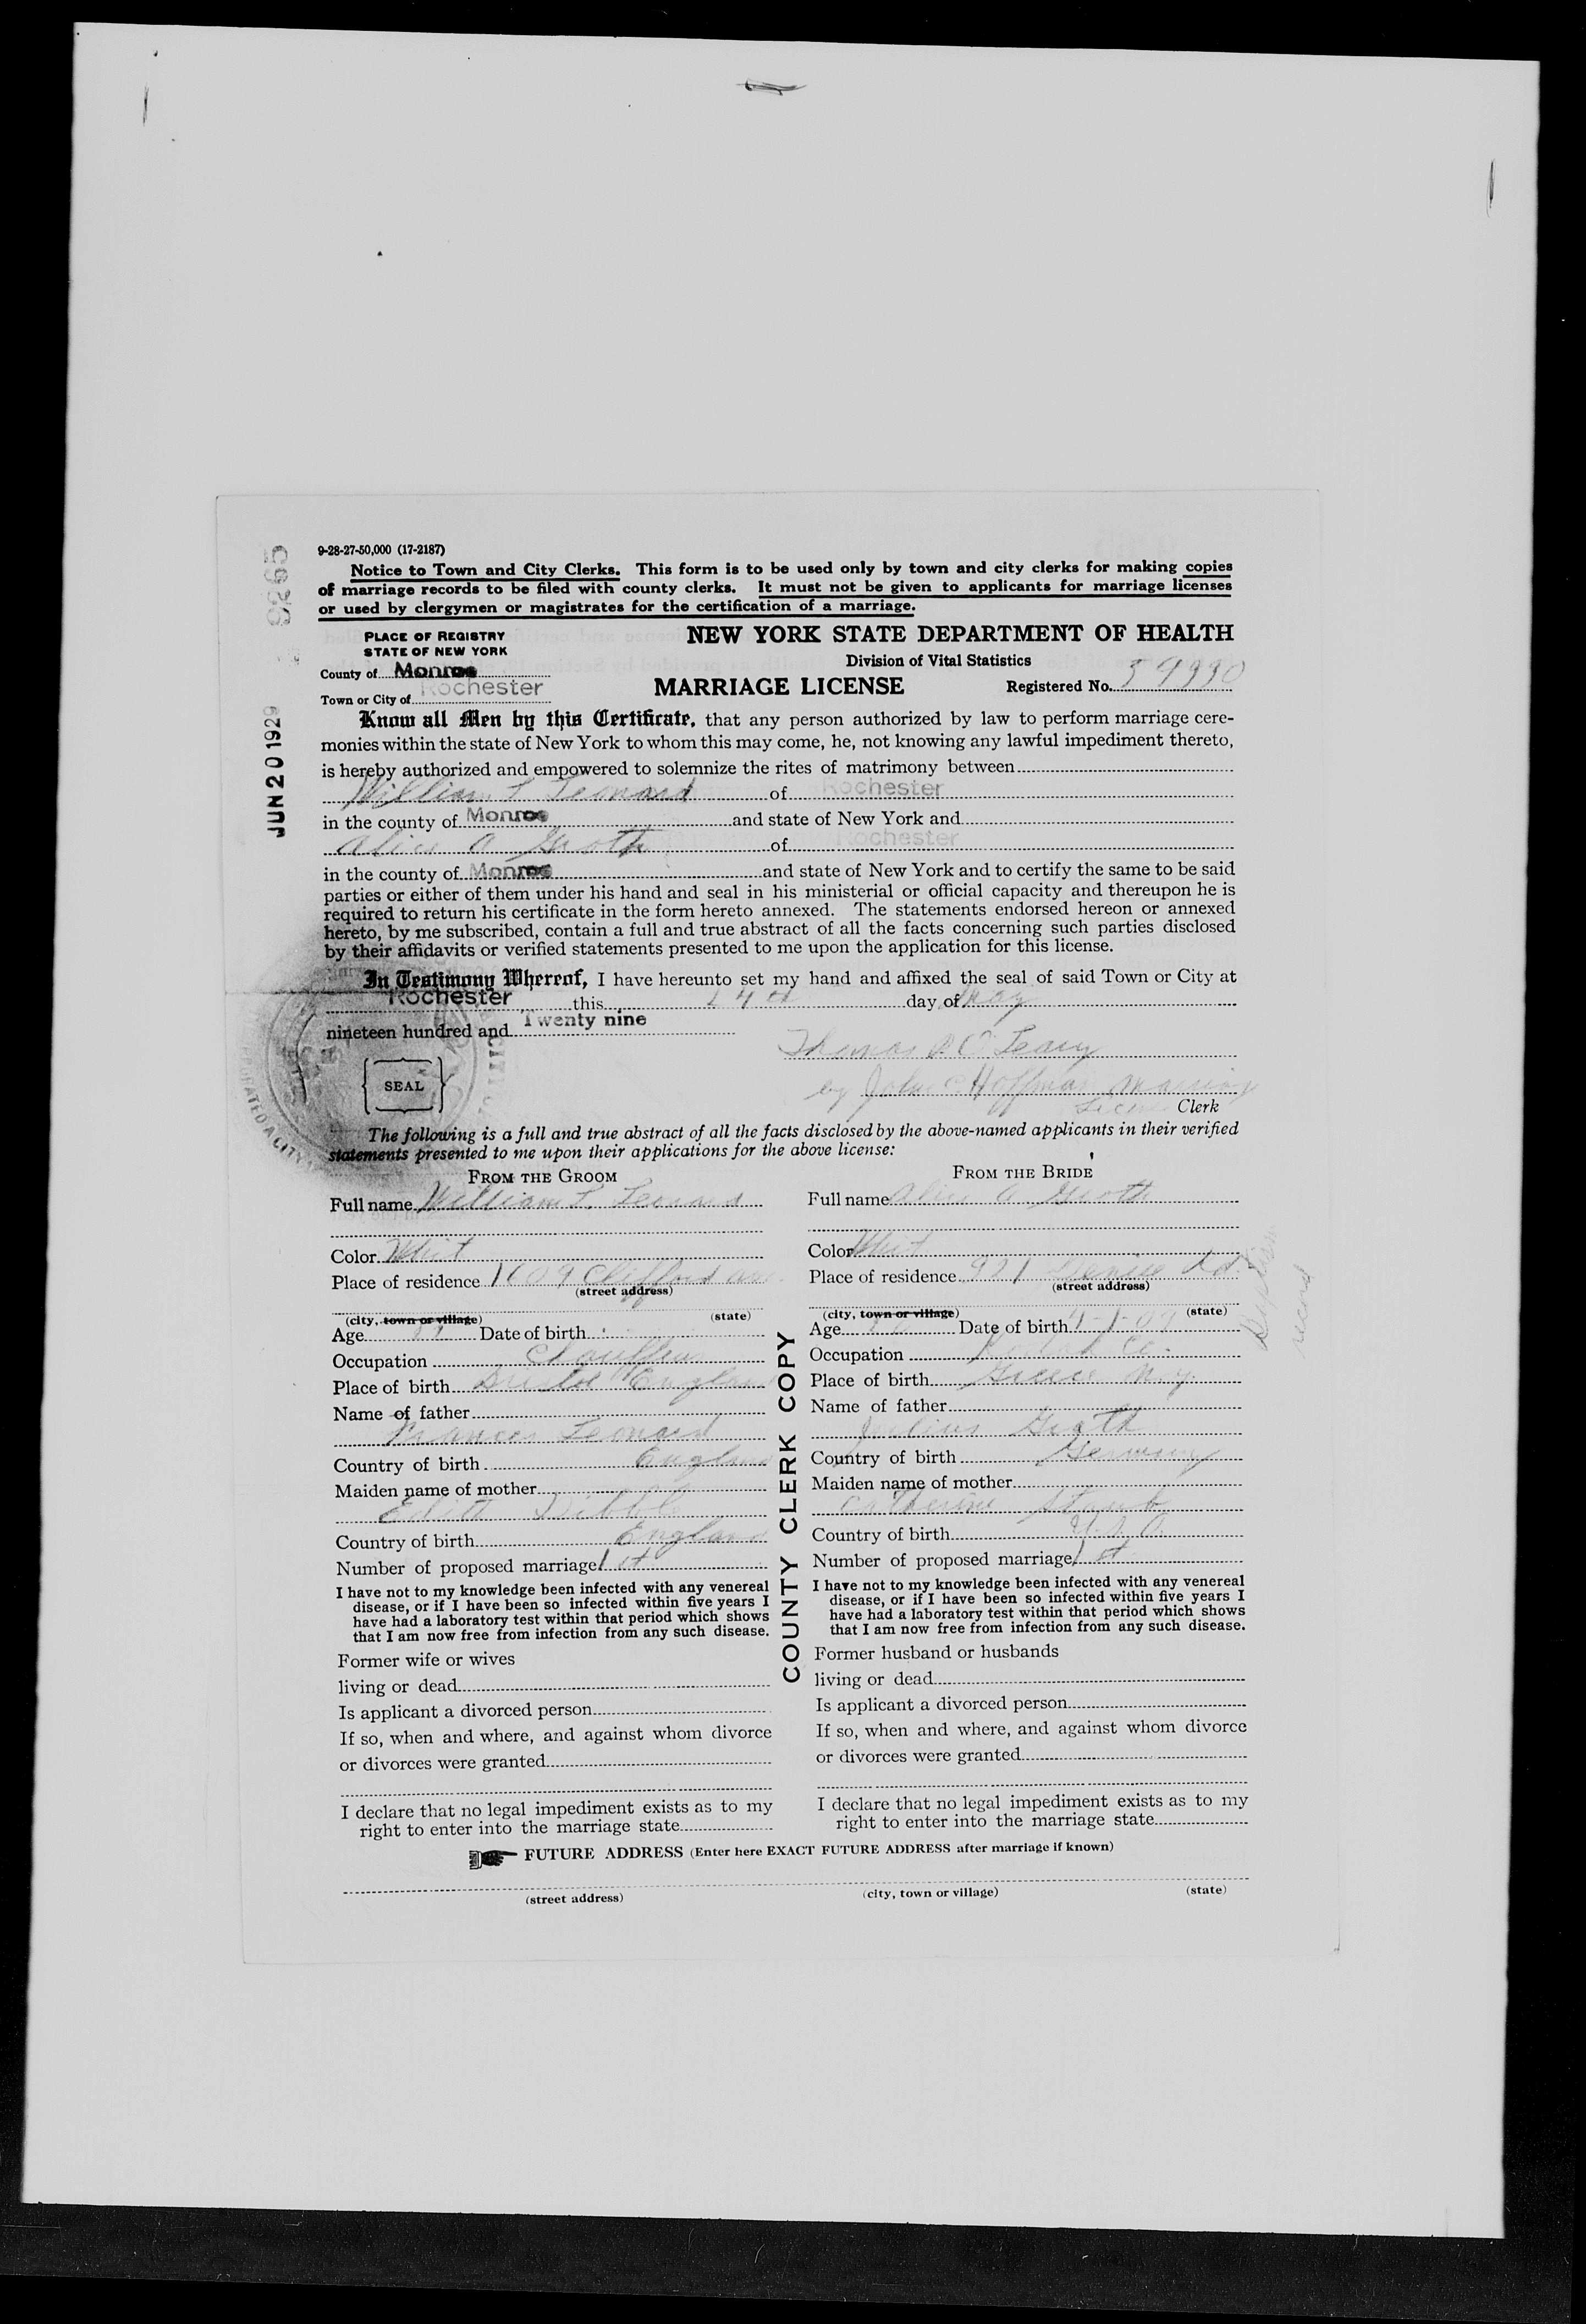 9-28-27-50,000 (17-2187)
Notice to Town and City Clerks. This form is to be used only by town and city clerks for making copies
of marriage records to be filed with county clerks. It must not be given to applicants for marriage licenses
or used by clergymen or magistrates for the certification of a marriage.
9265
JUN 20 1929
PLACE OF REGISTRY
STATE OF NEW YORK
County of Monroe
Town or City of Rochester
NEW YORK STATE DEPARTMENT OF HEALTH
Division of Vital Statistics
MARRIAGE LICENSE
Registered No. 59990
Know all Men by this Certificate, that any person authorized by law to perform marriage cere-
monies within the state of New York to whom this may come, he, not knowing any lawful impediment thereto,
is hereby authorized and empowered to solemnize the rites of matrimony between
William T Leonard of Rochester
in the county of Monroe and state of New York and
Alice A Groth of Rochester
in the county of Monroe and state of New York and to certify the same to be said
parties or either of them under his hand and seal in his ministerial or official capacity and thereupon he is
required to return his certificate in the form hereto annexed. The statements endorsed hereon or annexed
hereto, by me subscribed, contain a full and true abstract of all the facts concerning such parties disclosed
by their affidavits or verified statements presented to me upon the application for this license.
In Testimony Whereof, I have hereunto set my hand and affixed the seal of said Town or City at
Rochester this 24th day of May
nineteen hundred and Twenty nine
Thomas P O'Leary
by John C Hoffman Marriage
License Clerk
SEAL
The following is a full and true abstract of all the facts disclosed by the above-named applicants in their verified
statements presented to me upon their applications for the above license:
FROM THE GROOM
Full name William T. Leonard
Color Whit
Place of residence 1609 Clifford av
(street address)
(city, town or village) (state)
Age Date of birth
Occupation Chauffeur
Place of birth Bristol England
Name of father
Frances Leonard
Country of birth England
Maiden name of mother
Edith Dibble
Country of birth England
Number of proposed marriage 1st
I have not to my knowledge been infected with any venereal
disease, or if I have been so infected within five years I
have had a laboratory test within that period which shows
that I am now free from infection from any such disease.
Former wife or wives
living or dead
Is applicant a divorced person
If so, when and where, and against whom divorce
or divorces were granted
I declare that no legal impediment exists as to my
right to enter into the marriage state
COUNTY CLERK COPY
FROM THE BRIDE
Full name Alice A Groth
Color Whit
Place of residence 921 Denise Rd
(street address)
(city, town or village) (state)
Age Date of birth 4-1-09
Occupation Kodak Co.
Place of birth Greece N.Y.
Name of father
Julius Groth
Country of birth Germany
Maiden name of mother
Catherine Staub
Country of birth U.S.A.
Number of proposed marriage 1st
I have not to my knowledge been infected with any venereal
disease, or if I have been so infected within five years I
have had a laboratory test within that period which shows
that I am now free from infection from any such disease.
Former husband or husbands
living or dead
Is applicant a divorced person
If so, when and where, and against whom divorce
or divorces were granted
I declare that no legal impediment exists as to my
right to enter into the marriage state
record
FUTURE ADDRESS (Enter here EXACT FUTURE ADDRESS after marriage if known)
(street address) (city, town or village) (state)